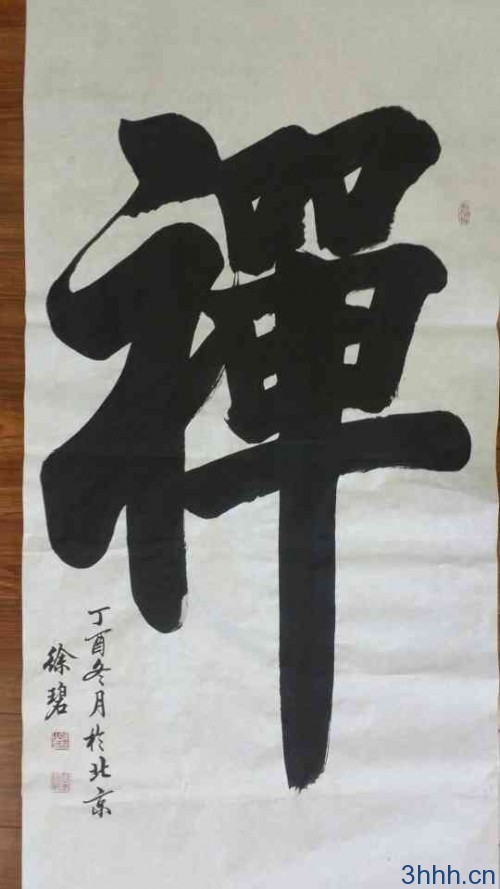 禪
丁酉冬月於北京
徐碧
3hhh.cn